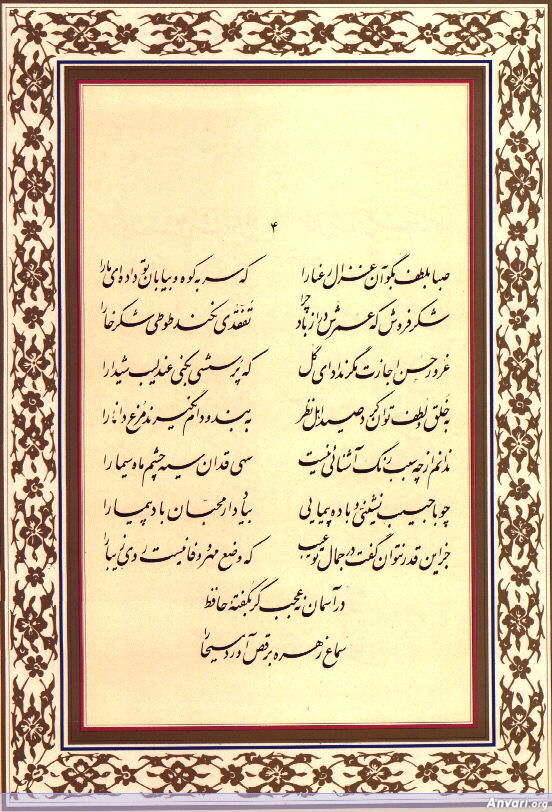 ۴
صبا بلطف بگو آن غزال رعنا را که سر به کوه و بیابان تو داده‌ای ما را
شکر فروش که عمرش دراز باد چرا تفقدی نکند طوطی شکرخا را
غرور حسن اجازت مگر نداد ای گل که پرسشی بکنی عندلیب شیدا را
به خلق و لطف توان کرد صید اهل نظر به بند و دام نگیرند مرغ دانا را
ندانم از چه سبب رنگ آشنائی نیست سهی قدان سیه چشم ماه سیما را
چو با حبیب نشینی و باده پیمایی بیاد دار محبان بادپیما را
جز این قدر نتوان گفت در جمال تو عیب که وضع مهر و وفا نیست روی زیبا را
در آسمان نه عجب گر بگفتهٔ حافظ
سماع زهره برقص آورد مسیحا را
Anvari.org